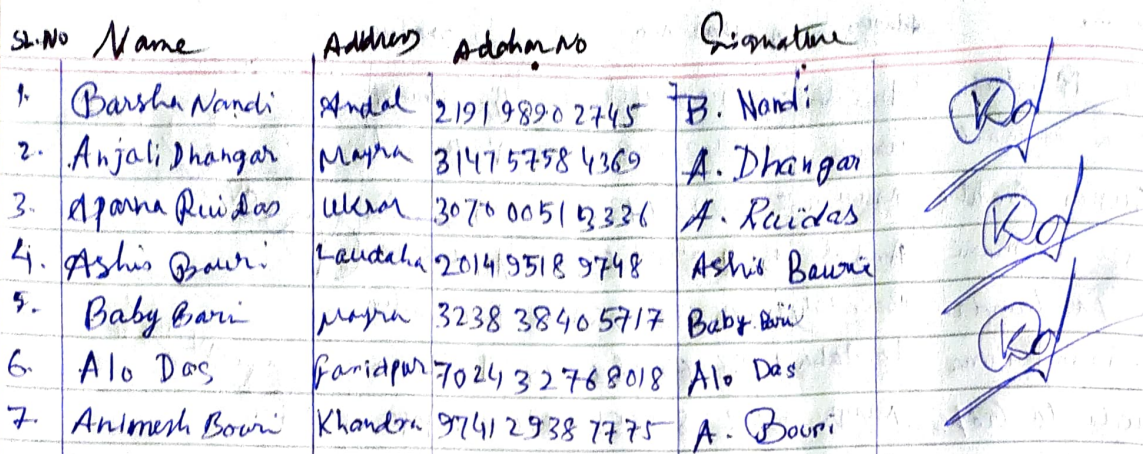 SL.No Name Address Adahar No Signature
1. Barsha Nandi Andal 2191 9890 2745 B. Nandi
2. Anjali Dhangar Mayra 3147 5758 4369 A. Dhangar
3. Aparna Rui Das Ukrar 3070 0051 3336 A. Ruidas
4. Ashis Bouri Laudaha 2014 9518 9748 Ashis Bourie
5. Baby Bari Mayra 3238 3840 5717 Baby Bari
6. Alo Das Faridpur 7024 3276 8018 Alo Das
7. Animesh Bouri Khandra 9741 2938 7775 A. Bouri